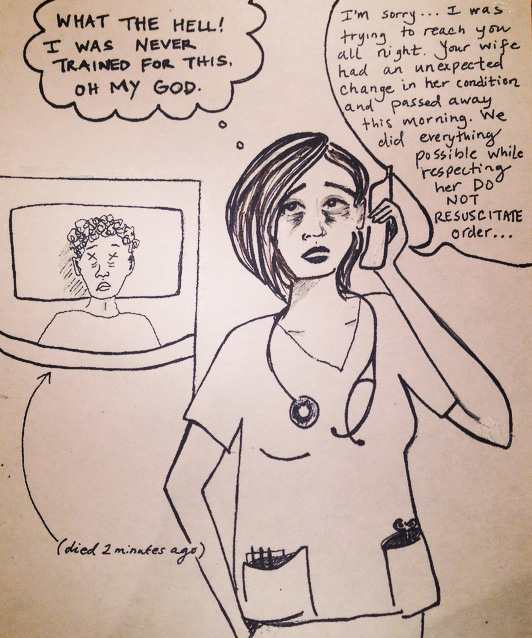 WHAT THE HELL!
I WAS NEVER
TRAINED FOR THIS.
OH MY GOD.
I'm sorry... I was
trying to reach you
all night. Your wife
had an unexpected
change in her condition
and passed away
this morning. We
did everything
possible while
respecting
her DO
NOT
RESUSCITATE
order...
(died 2 minutes ago)